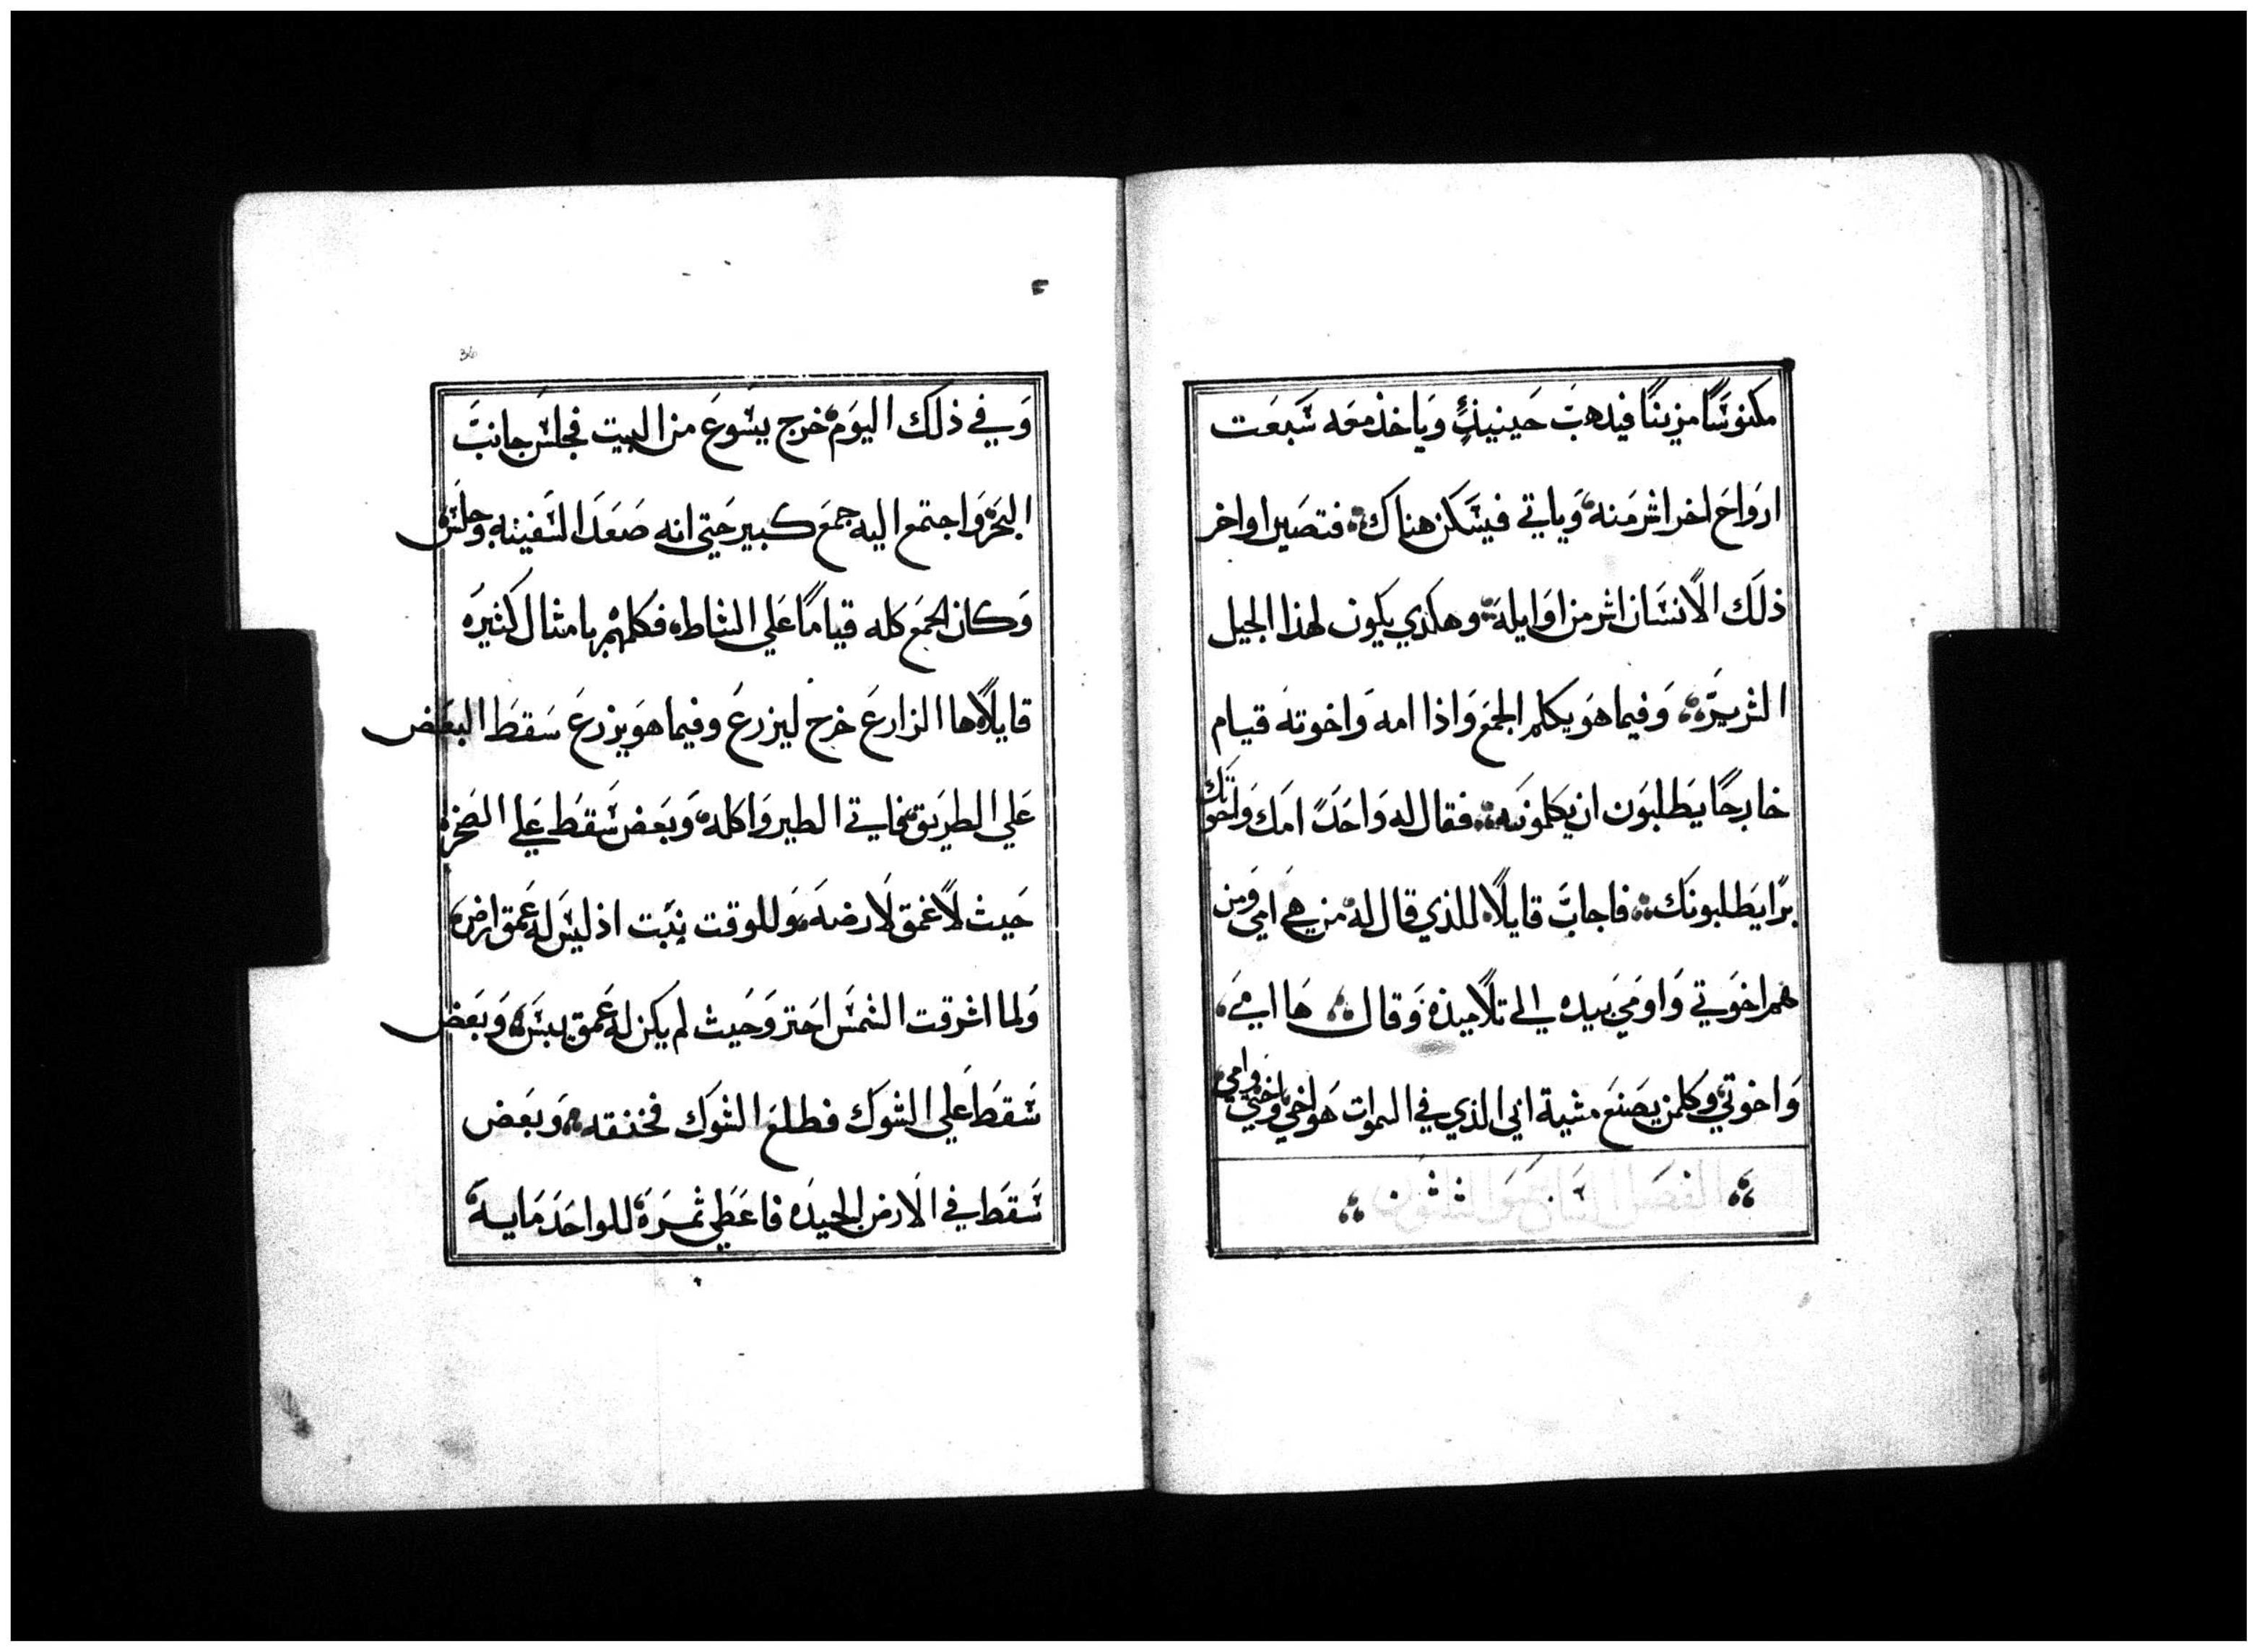 مكنوسًا مزينًا فيدهب حينيذٍ وياخذ معه سبعت
ارواح اخر اشر منه وياتي فيسكن هناك فتصير اواخر
ذلك الانسان اشر من اوايله وهكدي يكون لهذا الجيل
الشرير وفيما هو يكلم الجمع واذا امه واخوته قيام
خارجًا يطلبون ان يكلمونه فقال له واحدً امك واخوتك
برًا يطلبونك فاجاب قايلاً للذي قال له من هي امي ومن
هم اخوتي واومي بيده الي تلاميذه وقال ها امي
واخوتي وكلمن يصنع مشية ابي الذي في السموات هو اخي واختي وامي
36
وفي ذلك اليوم خرج يسوع من البيت فجلس جانب
البحر واجتمع اليه جمع كبير حتي انه صعد السفينه وجلس
وكان الجمع كله قيامًا علي الشاطه فكلهم بامثال كثيره
قايلاً ها الزارع خرج ليزرع وفيما هو يزرع سقط البعض
علي الطريق فاتي الطير واكله وبعض سقط علي الصخره
حيث لا عمق لارضه وللوقت نبت اذ ليس له عمق ارض
ولما اشرقت الشمس احتر وحيث لم يكن له عمق يبس وبعض
سقط علي الشوك فطلع الشوك فخنقه وبعض
سقط في الارض الجيده فاعطي ثمره للواحد مايه